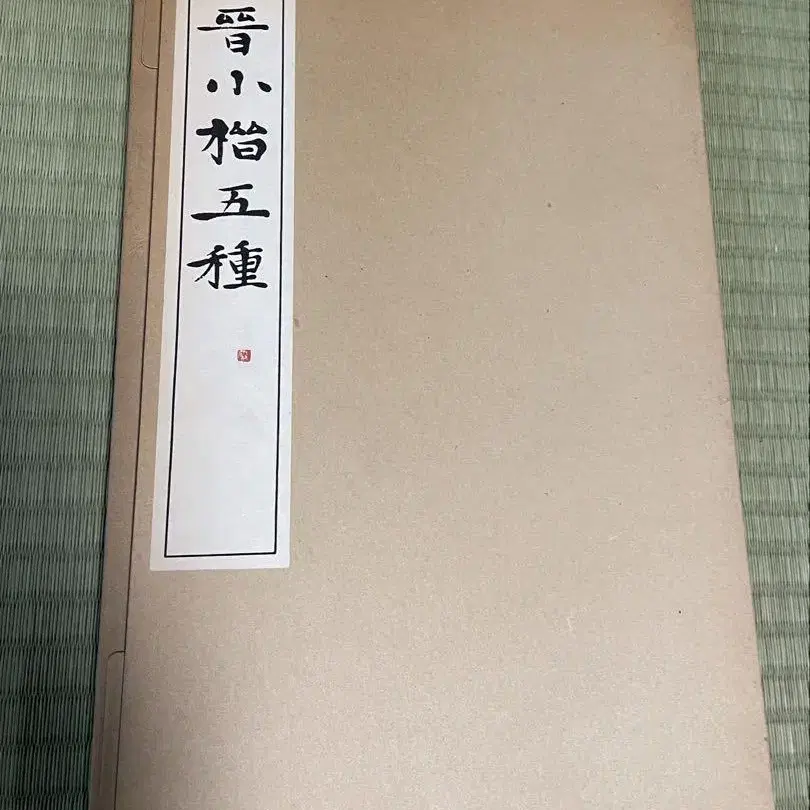 晉小楷五種